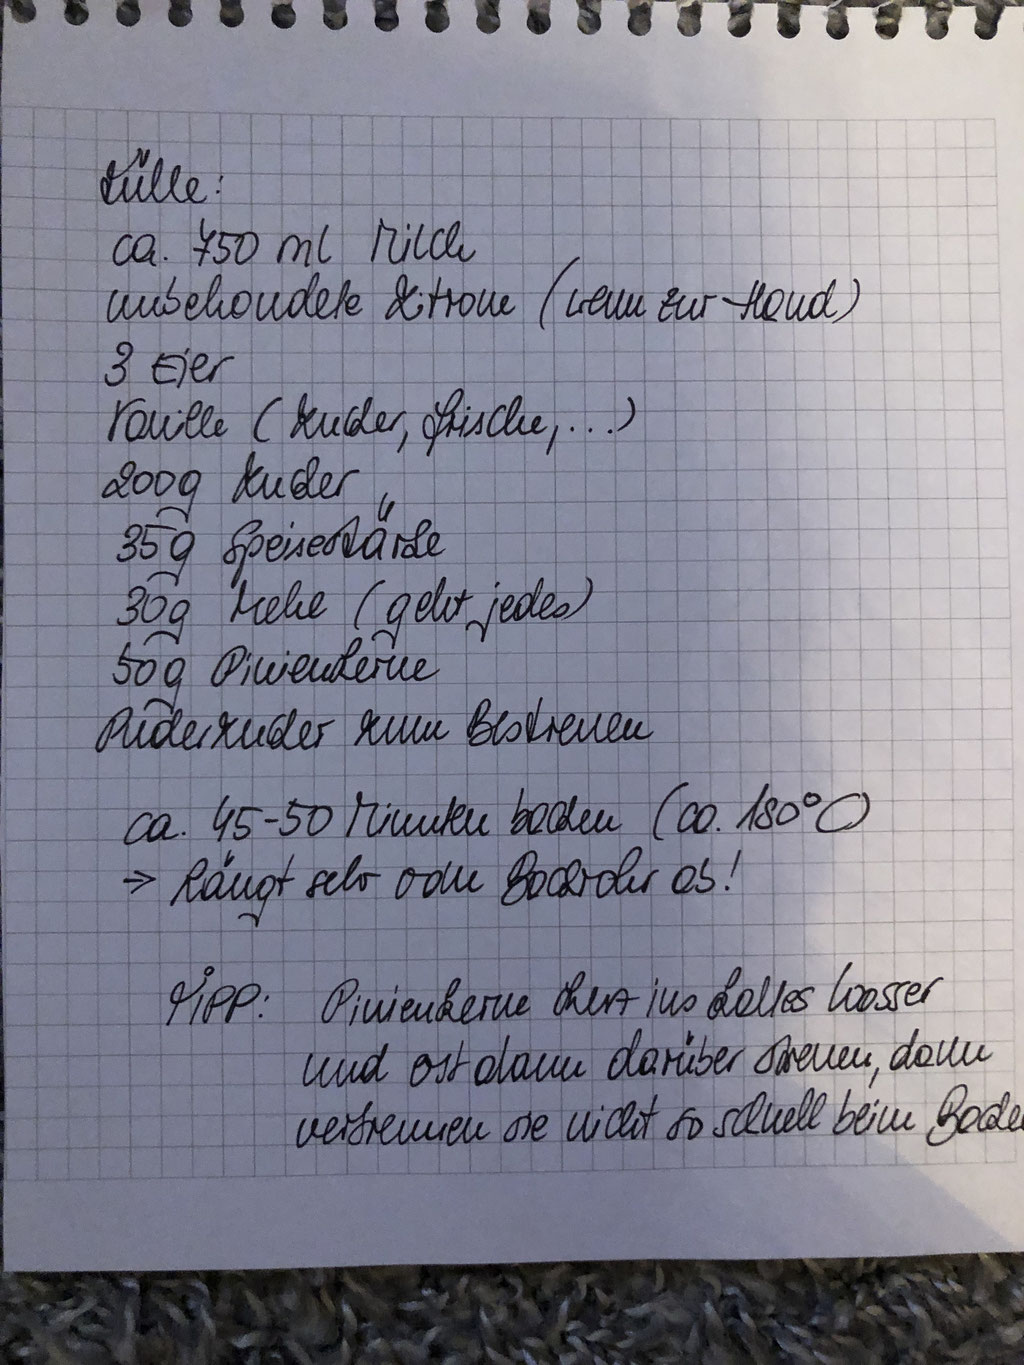 Fülle:
ca. 750 ml Milch
unbehandelte Zitrone (wenn zur Hand)
3 Eier
Vanille (Zucker, frische, ...)
200g Zucker
35g Speisestärke
30g Mehl (geht jedes)
50g Pinienkerne
Puderzucker zum Bestreuen
ca. 45-50 Minuten backen (ca. 180°C)
→ hängt sehr vom Backrohr ab!
TIPP: Pinienkerne kurz ins kalte Wasser
und erst dann darüber streuen, dann
verbrennen sie nicht so schnell beim Backen